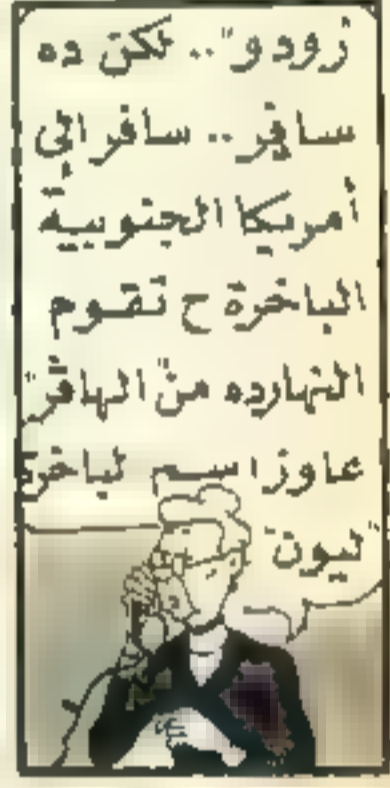 زودو".. لكن ده
سافر.. سافر الي
أمريكا الجنوبية
الباخرة ح تقوم
النهارده من "الهافر"
عاوز اسم لباخرة
"ليون"